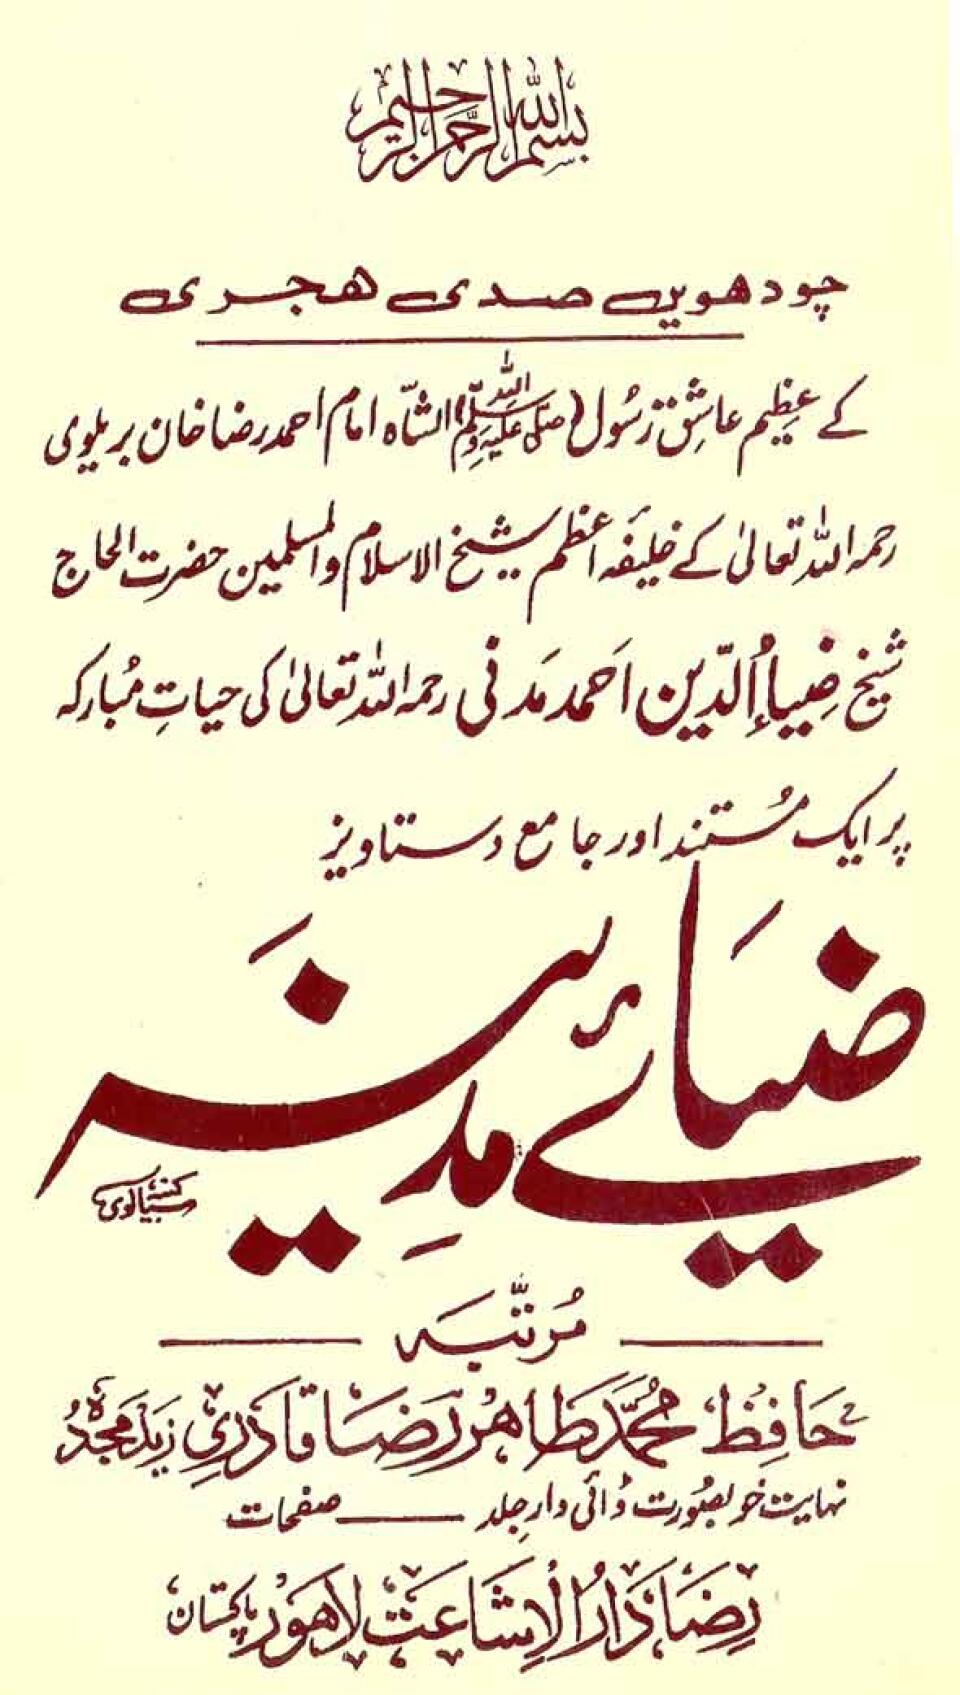 بسم اللہ الرحمن الرحیم
چودھویں صدی ھجری
کے عظیم عاشق رسُول (صلی اللہ علیہ وسلم) الشاہ امام احمد رضا خان بریلوی
رحمہ اللہ تعالیٰ کے خلیفہ اعظم شیخ الاسلام والمسلمین حضرت الحاج
شیخ ضِیاءُ الدّین اَحمد مَدنی رحمہ اللہ تعالیٰ کی حیاتِ مُبارکہ
پر ایک مُستند اور جامع دستاویز
ضیَائے مَدِینَہ
کتبہ سیالوی
مُرتّبہ
حَافِظ مُحمَّد طَاہر رَضَا قَادَرِی زِیدَ مَجدُہ
نہایت خوبصُورت ڈائی دار جِلد ــــــ صفحات
رِضَا دَارُ الاِشَاعَت لاہَور پاکستان